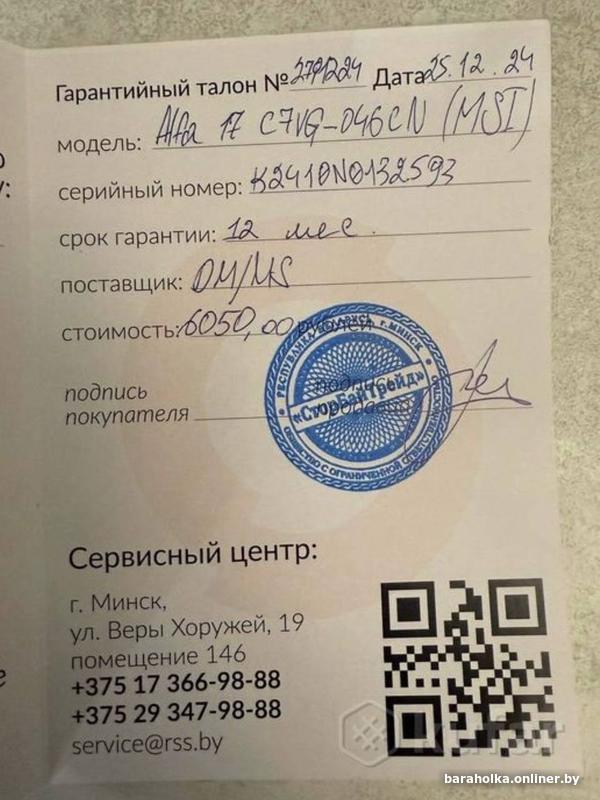 Гарантийный талон № 2791224 Дата 25.12.24
модель: Alfa 17 C7VG-046CN (MSI)
серийный номер: K2410N0132593
срок гарантии: 12 мес.
поставщик: DM/MS
стоимость: 6050,00 рублей
РЕСПУБЛИКА БЕЛАРУСЬ, г. МИНСК
подпись
продавца
«СторБайТрейд»
ОБЩЕСТВО С ОГРАНИЧЕННОЙ ОТВЕТСТВЕННОСТЬЮ
подпись
покупателя
Сервисный центр:
г. Минск,
ул. Веры Хоружей, 19
помещение 146
+375 17 366-98-88
+375 29 347-98-88
service@rss.by
Kufar
baraholka.onliner.by